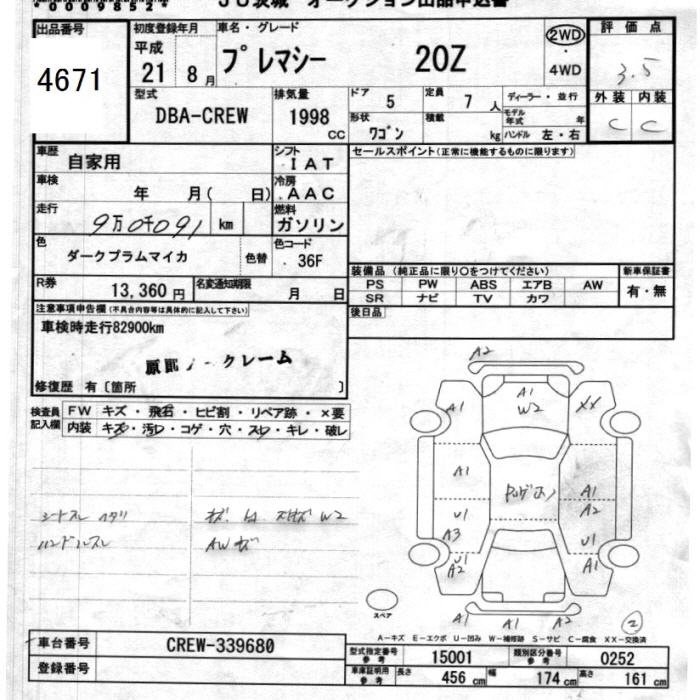 JU茨城 オークション出品申込書
出品番号
4671
初度登録年月
平成
21 8月
車名・グレード
プレマシー 20Z
2WD
・
4WD
評価点
3.5
外装 内装
C C
型式
DBA-CREW
排気量
1998 cc
ドア 5
定員 7 人
ディーラー・並行
形状 ワゴン
積載 kg
モデル年式 年
ハンドル 左・右
車歴
自家用
シフト
IAT
セールスポイント(正常に機能するものに限ります)
車検
年 月( 日)
冷房
AAC
走行
km
燃料
ガソリン
色
ダークプラムマイカ
色替
色コード
36F
装備品 (純正品に限り〇をつけてください)
PS PW ABS エアB AW
SR ナビ TV カワ
新車保証書
有・無
R券
13,360 円
名変通知期限
月 日
後日品
注意事項申告欄(不具合内容等は具体的に記入して下さい)
車検時走行82900km
ノークレーム
修復歴 有〔箇所 〕
検査員記入欄
FW キズ・飛石・ヒビ割・リペア跡・×要
内装 キズ・汚レ・コゲ・穴・スレ・キレ・破レ
シートスレ ヘタリ
ハンドルスレ
AWキズ
W2
A2
A1
W2
A1
XX
A1
A1
A2
U1
A3
U1
U1
A2
A2
A1 A1 A2
スペア
2
A-キズ E-エクボ U-凹み W-補修跡 S-サビ C-腐食 XX-交換済
車台番号
CREW-339680
登録番号
型式指定番号 参考
15001
類別区分番号 参考
0252
車庫証明用 参考
長さ 456 cm
幅 174 cm
高さ 161 cm